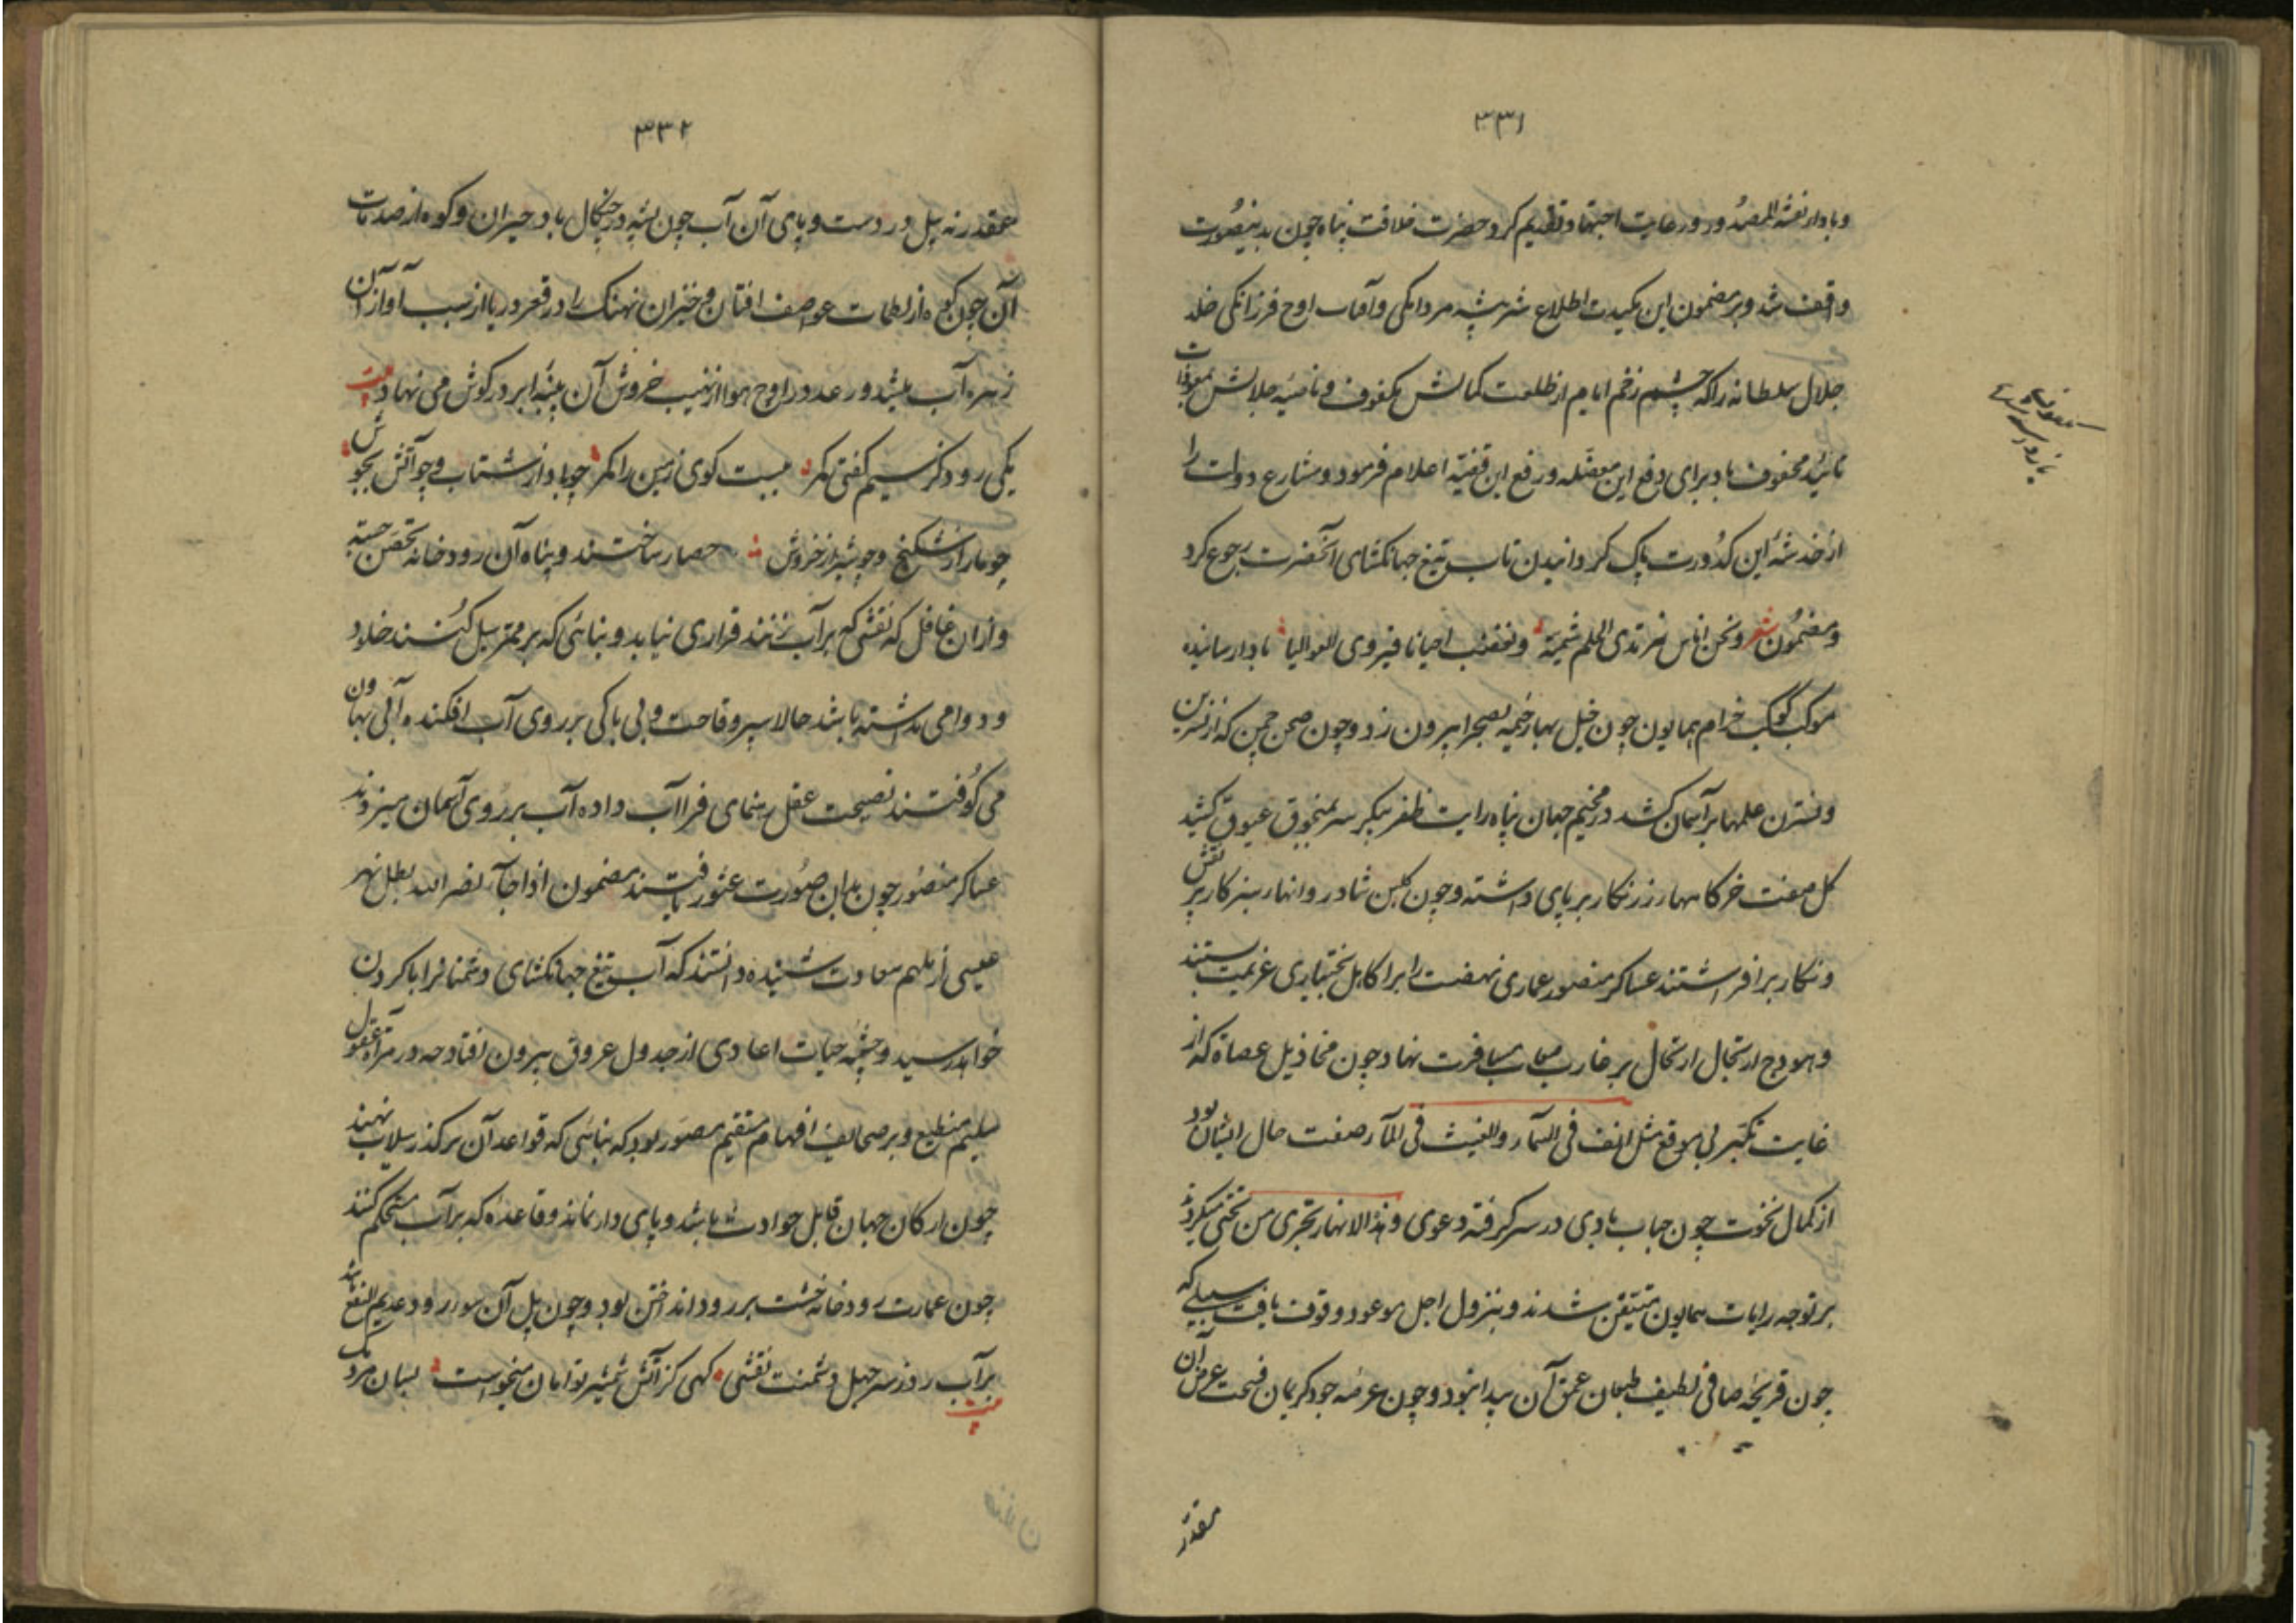 ۳۳۱
وبادار نفثة المصدور ورعایت اجتهاد تقدیم کرد حضرت خلافت پناه چون بدینصورت
واقف شد و بر مضمون این مکیدت اطلاع شیر بیشه مردانکی وآفتاب اوج فرزانکی خلد
جلال سلطانه را که چشم زخم ایام از طلعت کمالش مکفوف و ناصیه جلالش بمعوذات
تائید محفوف باد برای دفع این معضله و رفع این قضیه اعلام فرمود و مشارع دولت را
از خدشه این کدورت پاک کردانیدن تاب تیغ جهانکشای آنحضرت رجوع کرد
ومضمون شعر ونحن اناس نرتدی الحلم شیمة ونغضب احیانا فنروی العوالیا بادا رسانیده
موکب کوکب خرام همایون چون خیل بهار خیمه بصحرا بیرون زد وچون صحن چمن که از نسرین
ونسترن علمها بر آسمان کشد در مخیم جهان پناه رایت ظفر پیکر سر بمنجوق عیوق کشید
کل صفت خرکاهها زرنکار بر پای داشته وچون کلبن شادروانها سبزکار پر نقش
ونکار برافراشتند عساکر منصور عماری نهضت را بر کاهل بختیاری عزیمت بستند
وهودج ارتجال ارتحال بر غارب مسافرت نهاد چون مخاذیل عصاة که از
غایت تکبر بی موقع مثل انف فی السمآء والغیث فی المآء صفت حال ایشان بود
از کمال نخوت چون حباب بادی در سر کرفته دعوی وهذه الانهار تجری من تحتی میکردند
بر توجه رایات همایون متیقن شدند وبنزول اجل موعود وقوف یافت سیلی که
چون قریحه صافی لطیف طبعان عمق آن پیدا نبود وچون عرصه جود کریمان فسحت عرض آن
مقدر
۳۳۲
مقدر نه پل در دست وپای آن آب چون پشه در چنکال باد حیران وکوه از صدمات
آن چون کوه از لطمات عواصف افتان وخیزان نهنک را در قعر دریا از سبب آواز آن
زهره آب میشد ورعد در اوج هوا از نهیب خروش آن پنبه ابر در کوش می نهاد بیت
یکی رود کز سیم کفتی مکر ببست کوی زمین را کمر چو باد از شتاب وچو آتش بجوش
چو مار از شکنج وچو شیر از خروش حصار ساختند وپناه آن رودخانه تحصن جسته
وازان غافل که نقشی که بر آب زنند قراری نیابد وبنائی که بر ممر سیل کنند خلود
ودوامی نداشته باشد حالا سپر وقاحت و بی باکی بر روی آب افکنده
می کوفتند نصیحت عقل رهنمای فرا آب داده آب بر روی آسمان میزدند
عساکر منصور چون بدان صورت عثور یافتند مضمون اذا جآء نصر الله بطل نهر
عیسی از ملهم سعادت شنیده دانستند که آب تیغ جهانکشای دشمنانرا با کردن
خواهد رسید وچشمه حیات اعادی از جدول عروق بیرون افتاد چه در مرآة عقول
سلیم منطبع وبر صحایف افهام مستقیم مصور بود که بنائی که قواعد آن بر کذر سیلاب نهند
چون ارکان جهان قابل حوادث باشد وپای دار نماند وقاعده که بر آب مستحکم کنند
چون عمارت رودخانه خشت بر رود انداختن بود وچون پل آن سوء رود عدیم النفع باشد
بیت
بر آب روز سر جهل دشمنت نقشی کهی کز آتش شمشیر تو امان میخواست بسان مردمک